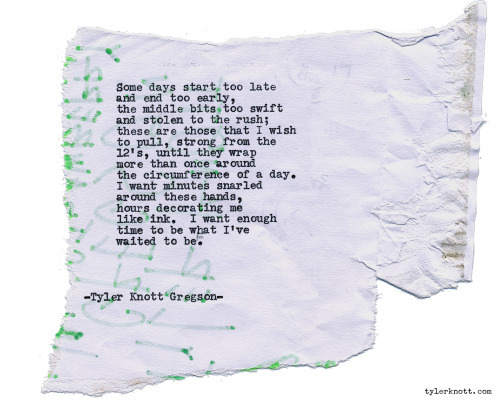 Some days start too late
and end too early,
the middle bits too swift
and stolen to the rush;
these are those that I wish
to pull, strong from the
12's, until they wrap
more than once around
the circumference of a day.
I want minutes snarled
around these hands,
hours decorating me
like ink.  I want enough
time to be what I've
waited to be.
-Tyler Knott Gregson-
tylerknott.com